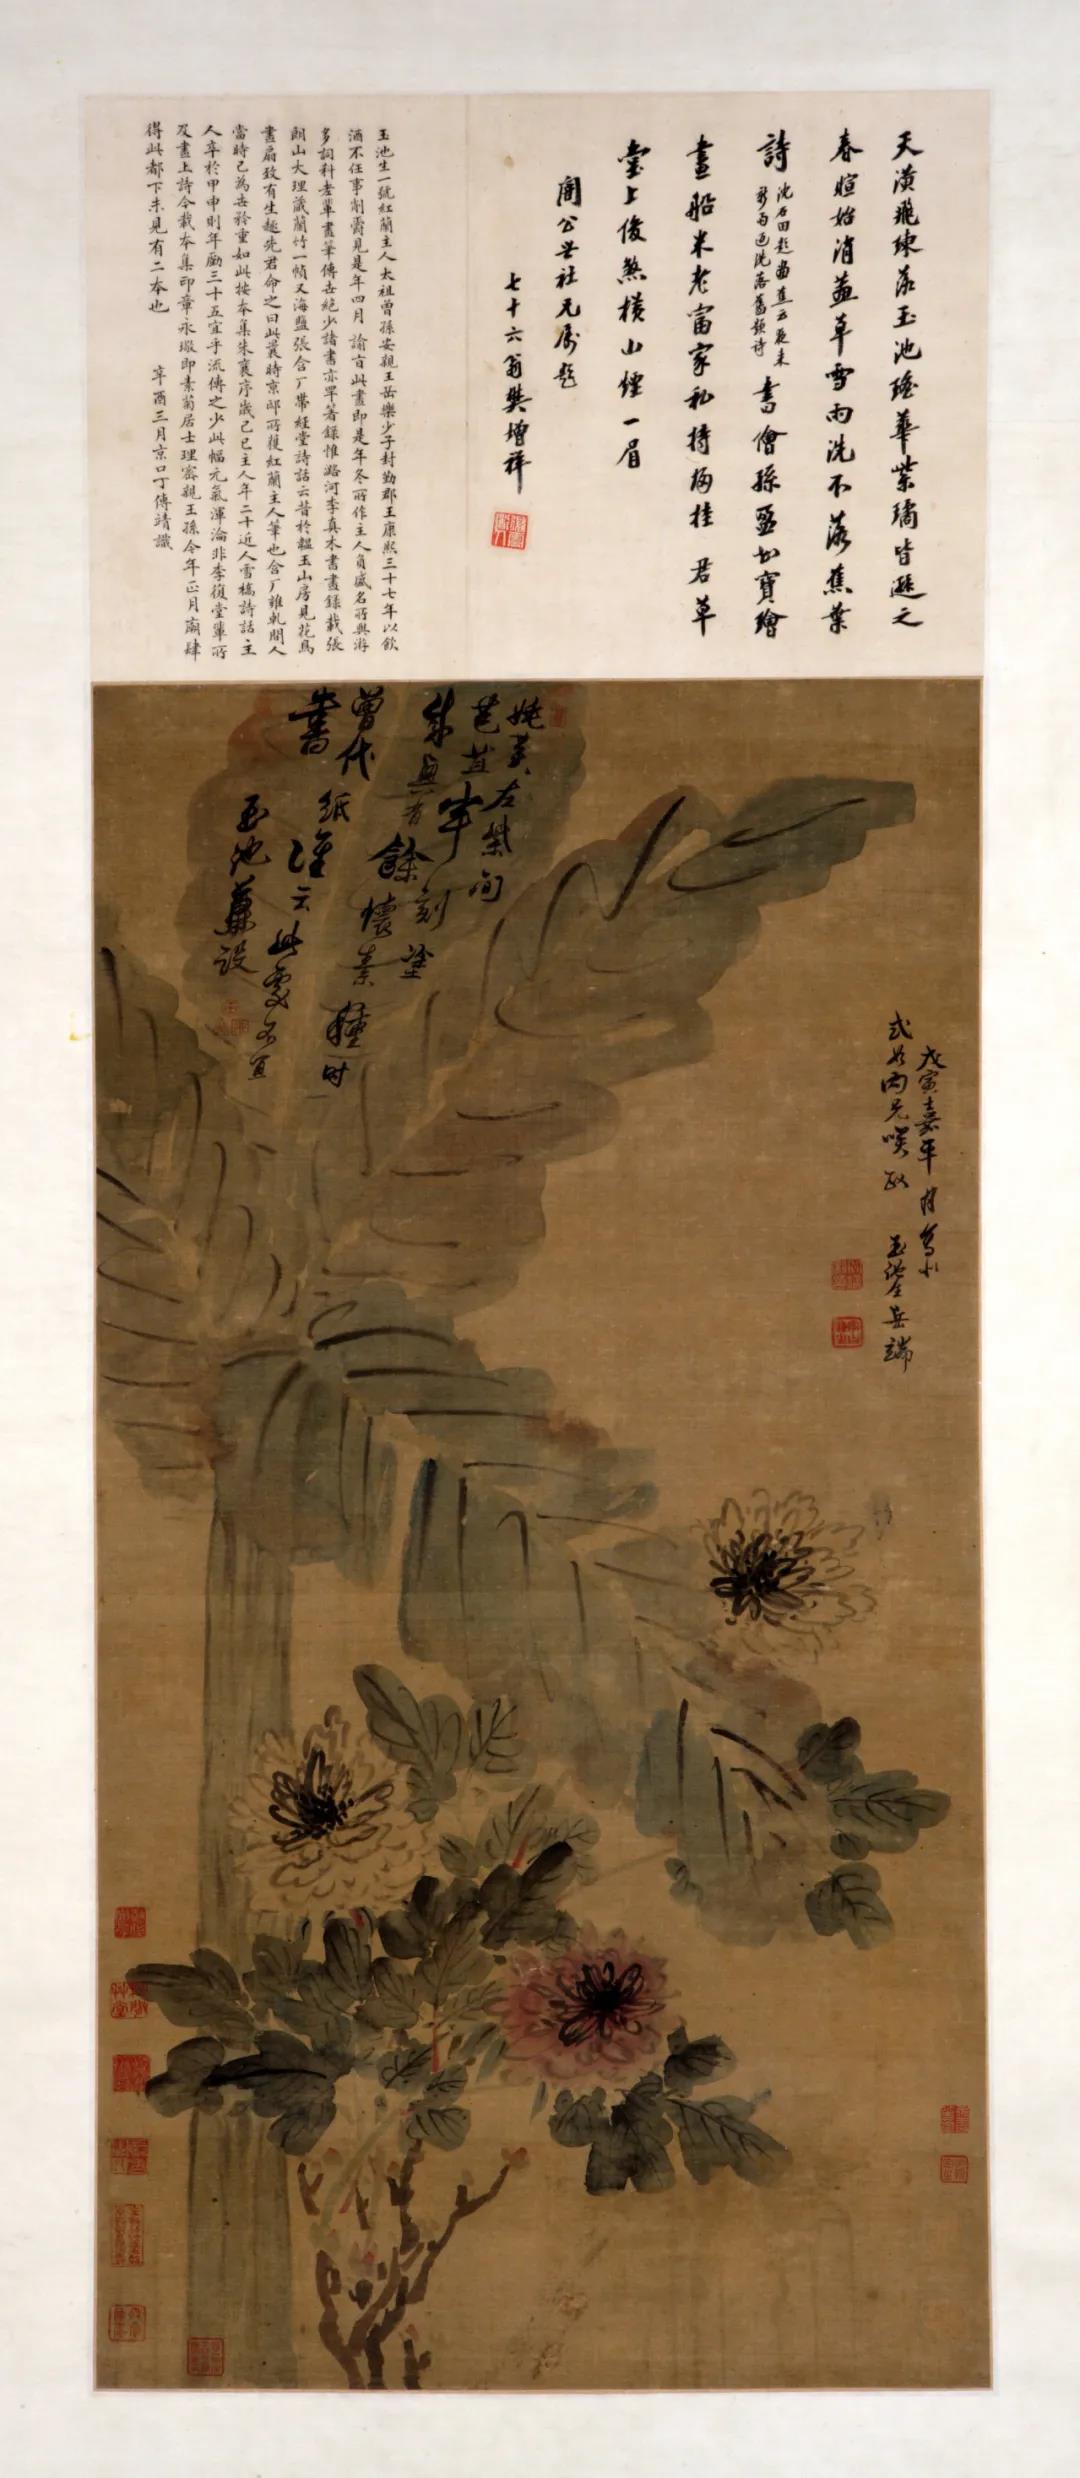 天潢飛練落玉池瑤華紫璚皆遜之
春暄始消蓋草雪雨洗不落蕉葉
詩
沈石田題畵蕉云夜來
新雨過洗落舊題詩
書僧孫歪出寶繪
畫船米老富家私持扬挂君草
堂上後煞橫山煙一眉
闇公社兄屬題
七十六翁樊增祥
玉池生一號紅蘭主人太祖曾孫安親王岳樂少子封勤郡王康熙三十七年以飲
酒不任事削爵見是年四月諭旨此畫即是年冬所作主人負盛名所與游
多詞科老輩畫筆傳世絕少諸書亦罕著錄惟潞河李真木書畫錄載張
朗山大理藏蘭竹一幀又海鹽張含厂帶經堂詩話云昔於韞玉山房見花鳥
畫扇致有生趣先君命之曰此曩時京邸所獲紅蘭主人筆也含厂雖乾間人
當時已為世矜重如此按本集朱襄序歲己巳主人年二十近人雪橋詩話主
人卒於甲申則年勵三十五宜乎流傳之少此幅元氣渾淪非李復堂輩所
及畫上詩今載本集印章永璥即素菊居士理密親王孫今年正月廟肆
得此都下未見有二本也
辛酉三月京口丁傳靖識
姚黃左紫旬
芭苴半
成真有餘刻塗
曾代紙懷素種时
書漄云此處不宜
玉池兼設
戊寅嘉平月寫似
式如両兄咲政
玉池生岳端